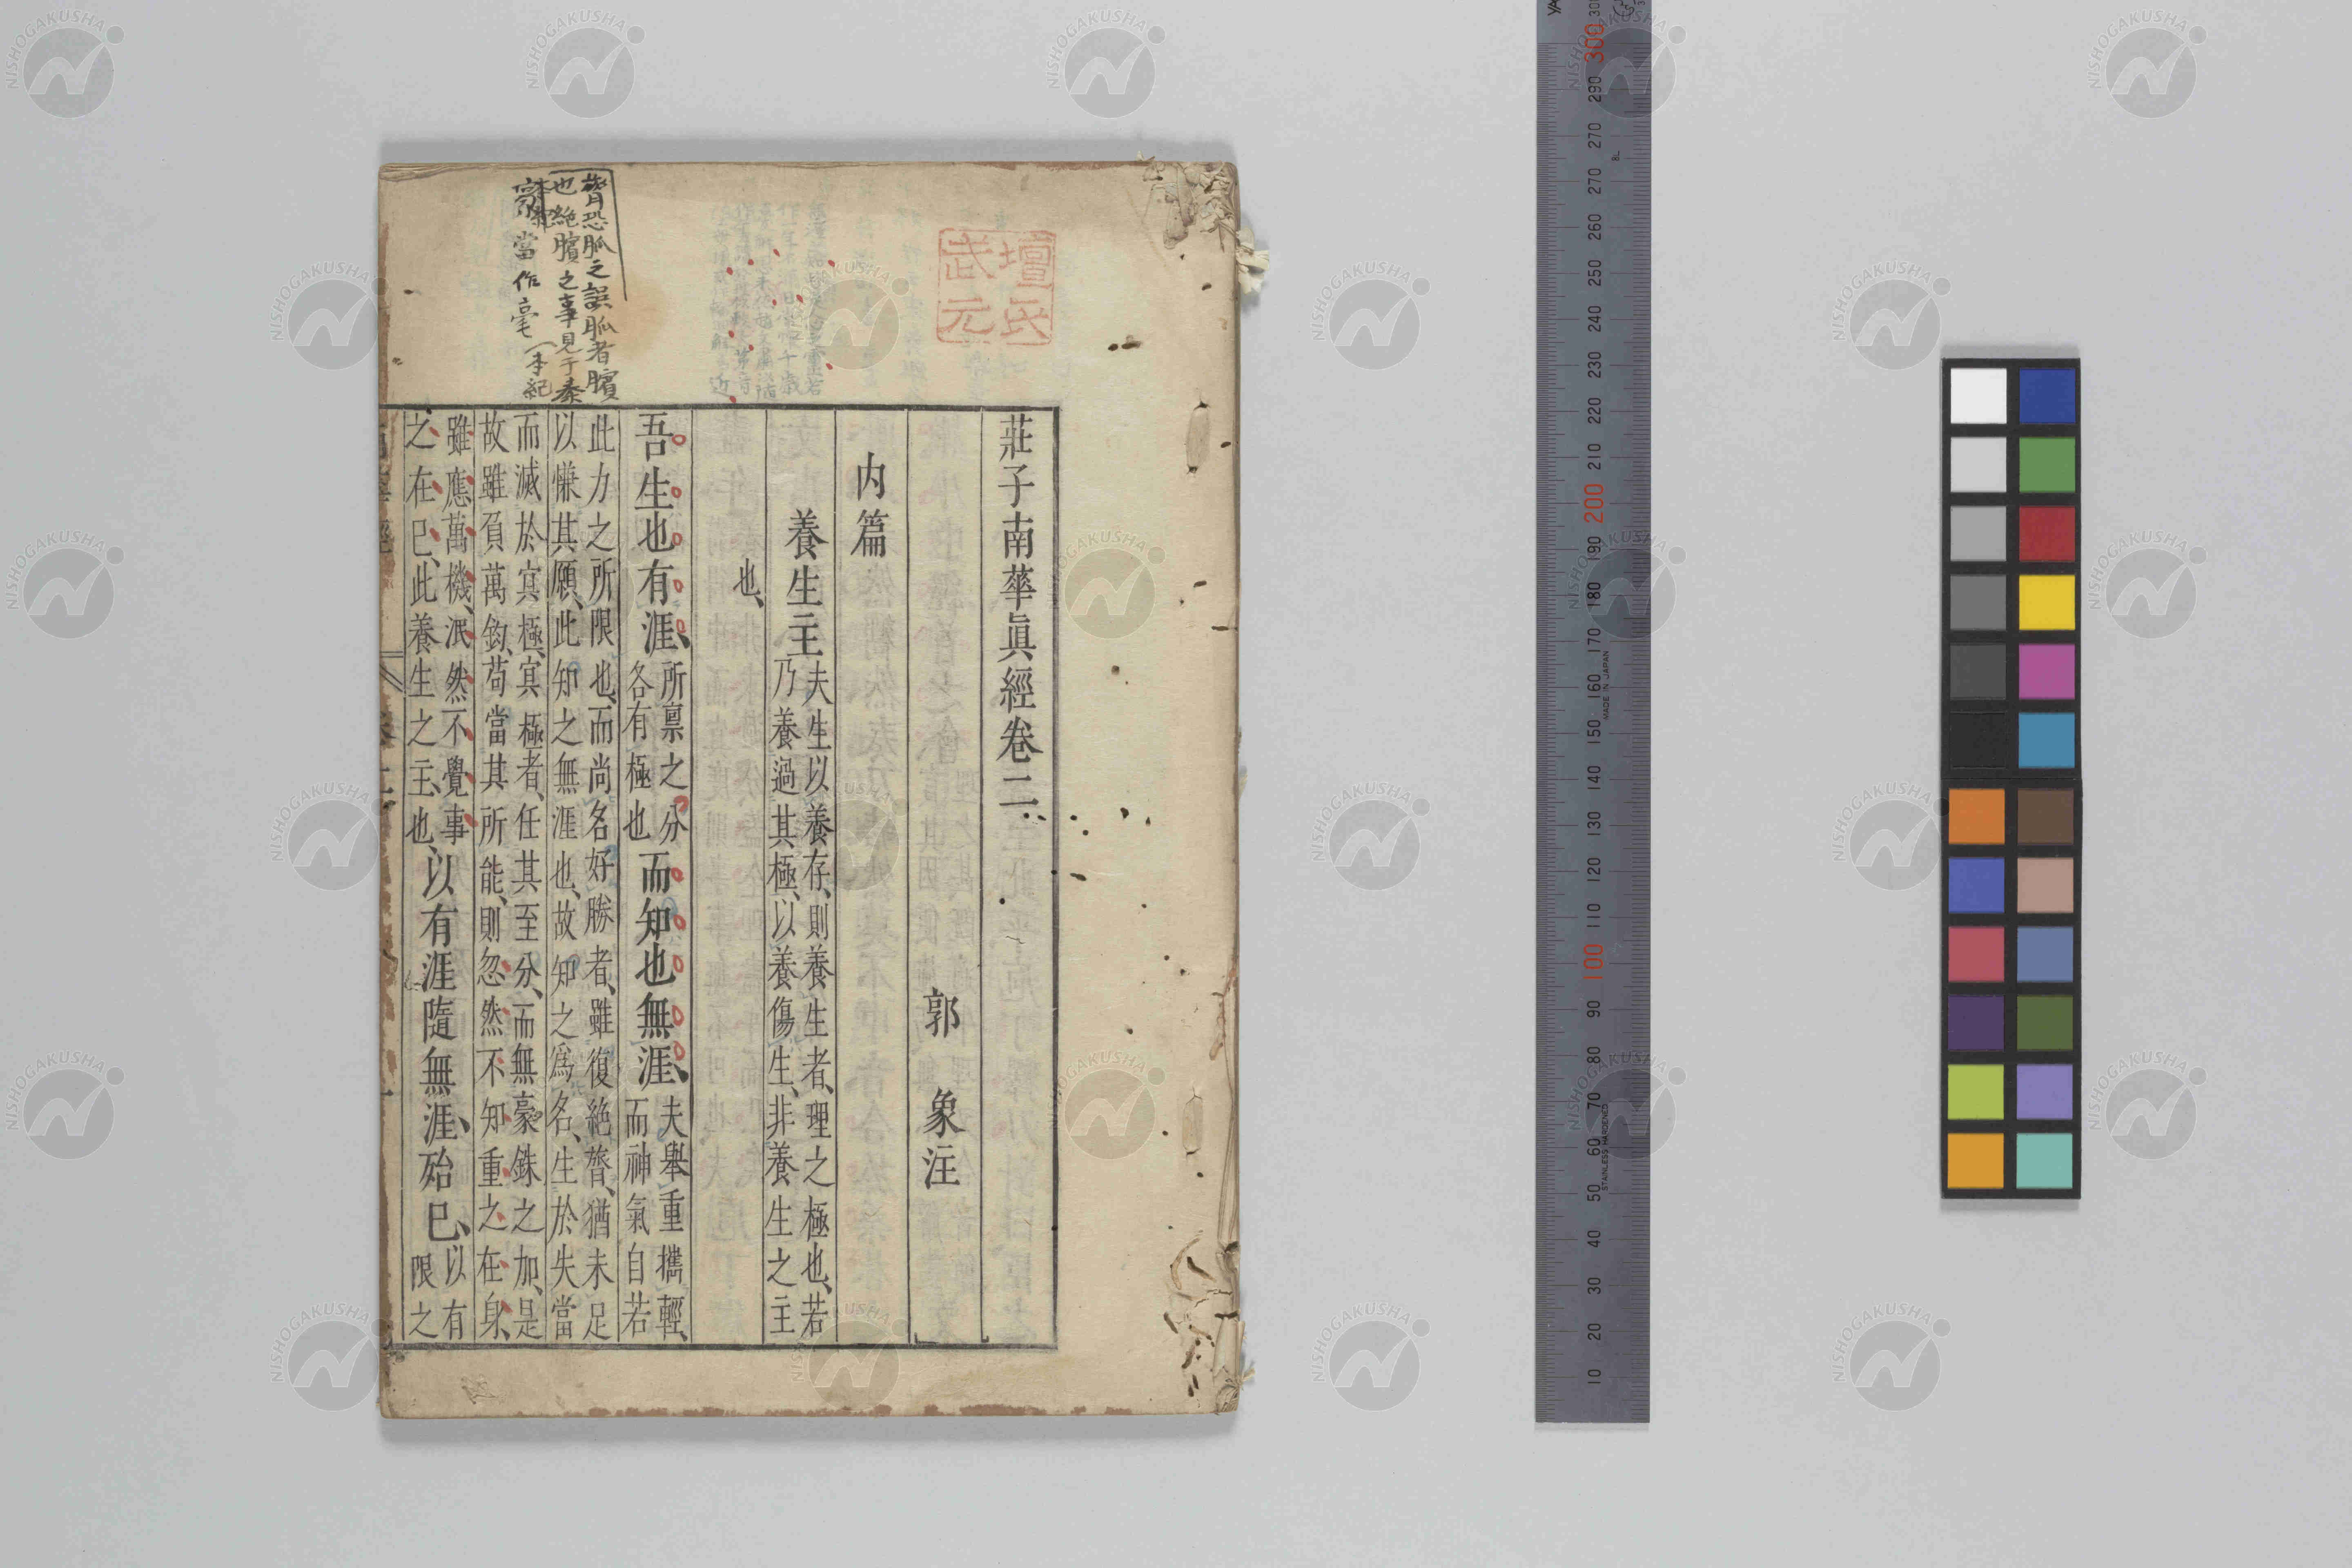 莊子南華眞經卷二
郭 象注
内篇
養生主 夫生以養存、則養生者、理之極也、若
乃養過其極、以養傷生、非養生之主
也、
吾生也有涯、 所禀之分
各有極也
而知也無涯、 夫舉重攜輕、
而神氣自若
此力之所限也、而尚名好勝者、雖復絶膂、猶未足
以慊其願、此知之無涯也、故知之爲名、生於失當
而滅於㝠極、㝠極者、任其至分、而無豪銖之加、是
故雖負萬鈞、苟當其所能、則忽然不知重之在身、
雖應萬機、泯然不覺事
之在已、此養生之主也、
以有涯隨無涯、殆已、 以有
限之
膂恐胍之誤胍者臏
也絶臏之事見于秦
本紀
豪當作毫
壇氏
武元
NISHOGAKUSHA
300
290
270
260
250
240
230
220
210
200
190
180
170
160
150
140
130
120
110
100
90
80
70
60
50
40
30
20
10
MADE IN JAPAN
STAINLESS HARDENED